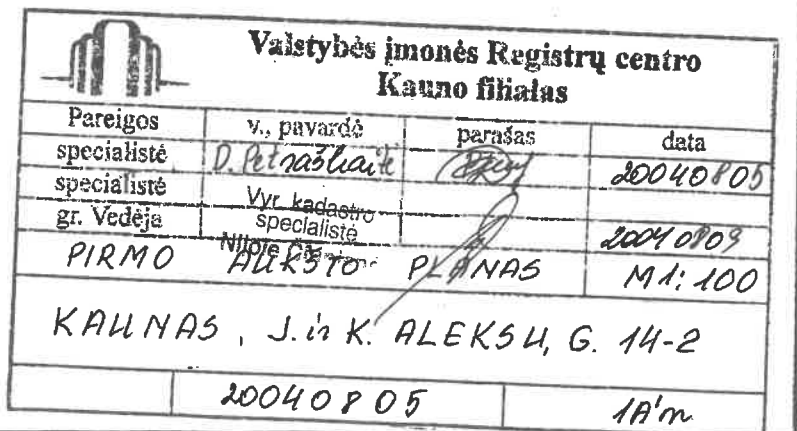 Valstybės įmonės Registrų centro
Kauno filialas
Pareigos v., pavardė parašas data
specialistė D. Petraškaitė 20040805
specialistė Vyr. kadastro
gr. Vedėja specialistė 20040809
Nijolė
PIRMO AUKŠTO PLANAS M 1:100
KAUNAS, J. ir K. ALEKSŲ, G. 14-2
20040805